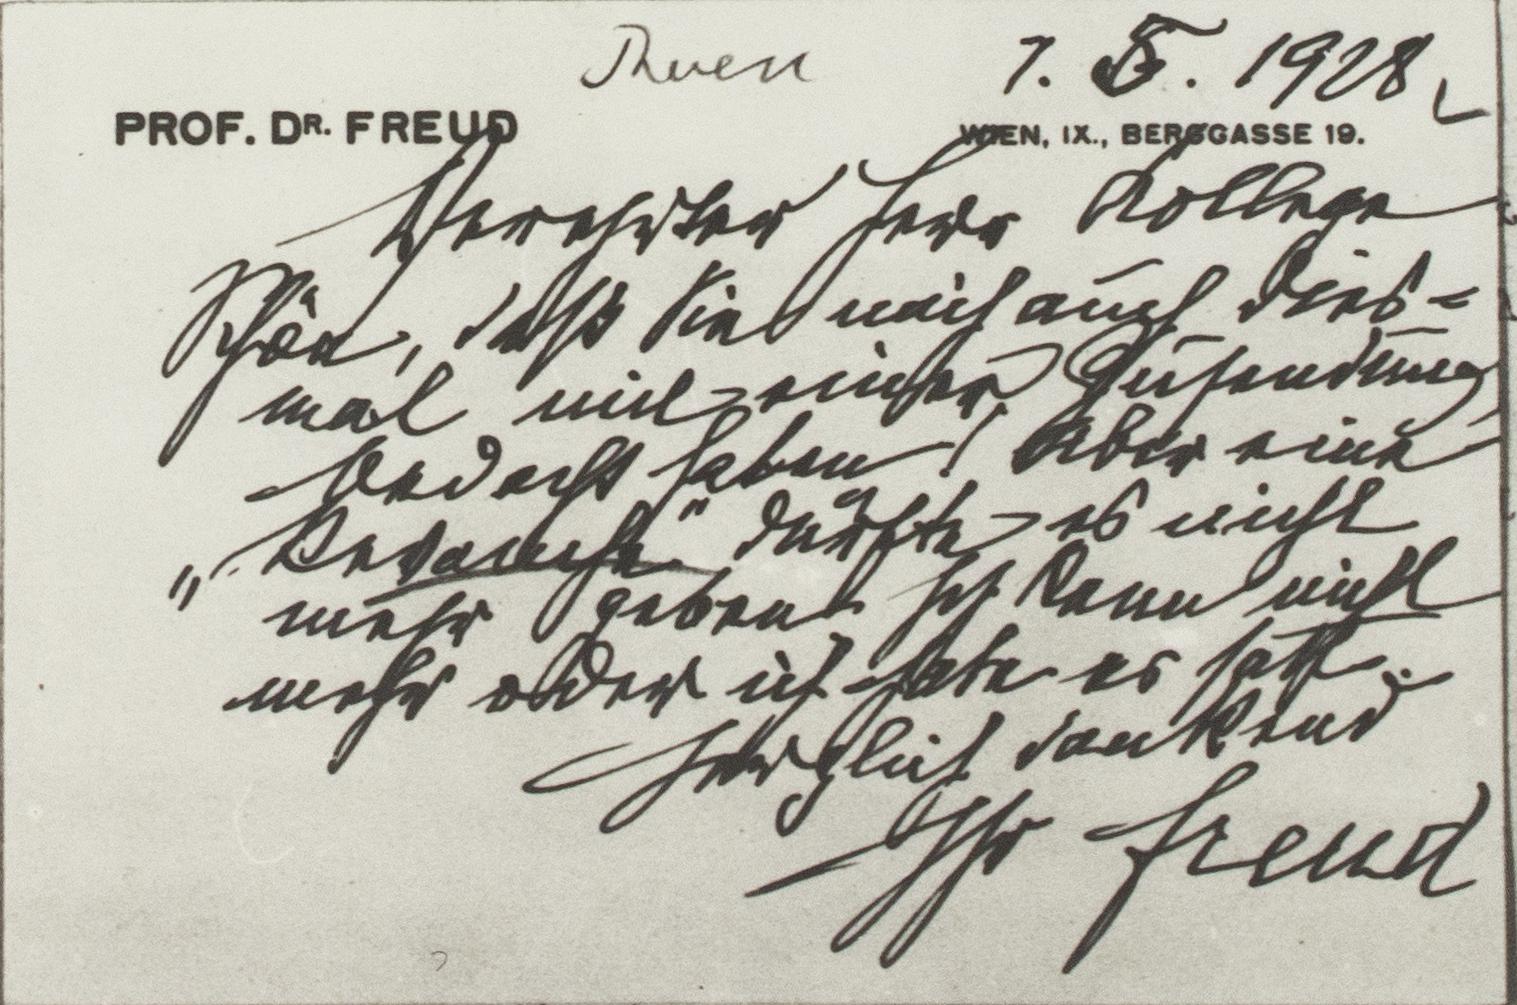 7. 1928
PROF. DR. FREUD
WIEN, IX., BERGGASSE 19.
Verehrter Herr Kollege
Schön, daß Sie mich auch dies-
mal mit einer Zusendung
bedacht haben! Aber eine
„Revanche" dürfte es nicht
mehr geben. Ich kann nicht
mehr oder ich habe es satt.
Herzlich dankend
Ihr Freud